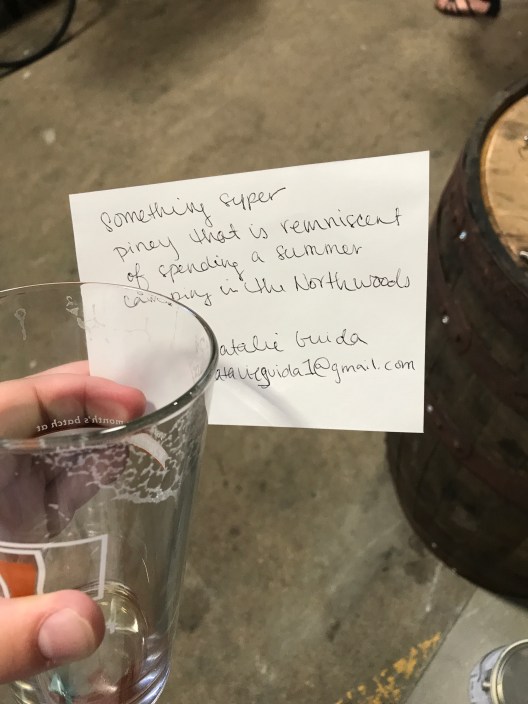 something super
piney that is remniscent
of spending a summer
camping in the Northwoods
atalie Guida
guida1@gmail.com
month's batch at